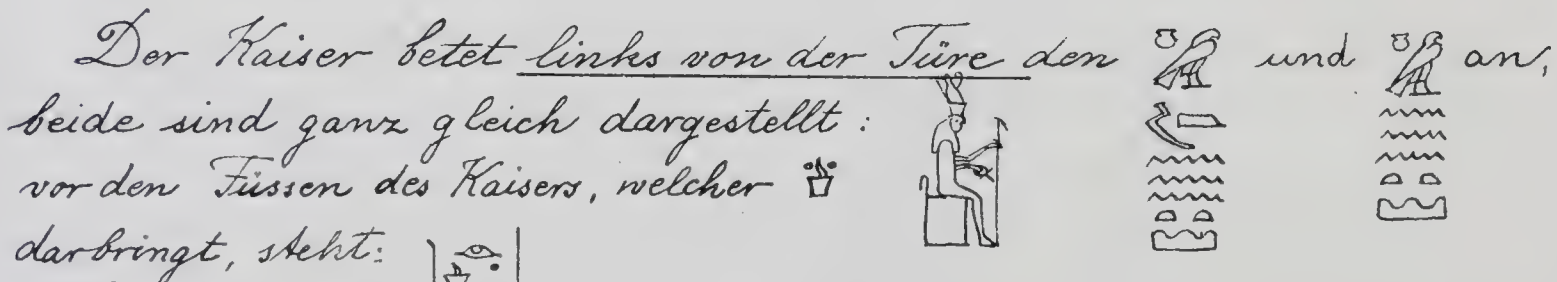 Der Kaiser betet links von der Türe den und an,
beide sind ganz gleich dargestellt:
vor den Füssen des Kaisers, welcher
darbringt, steht: